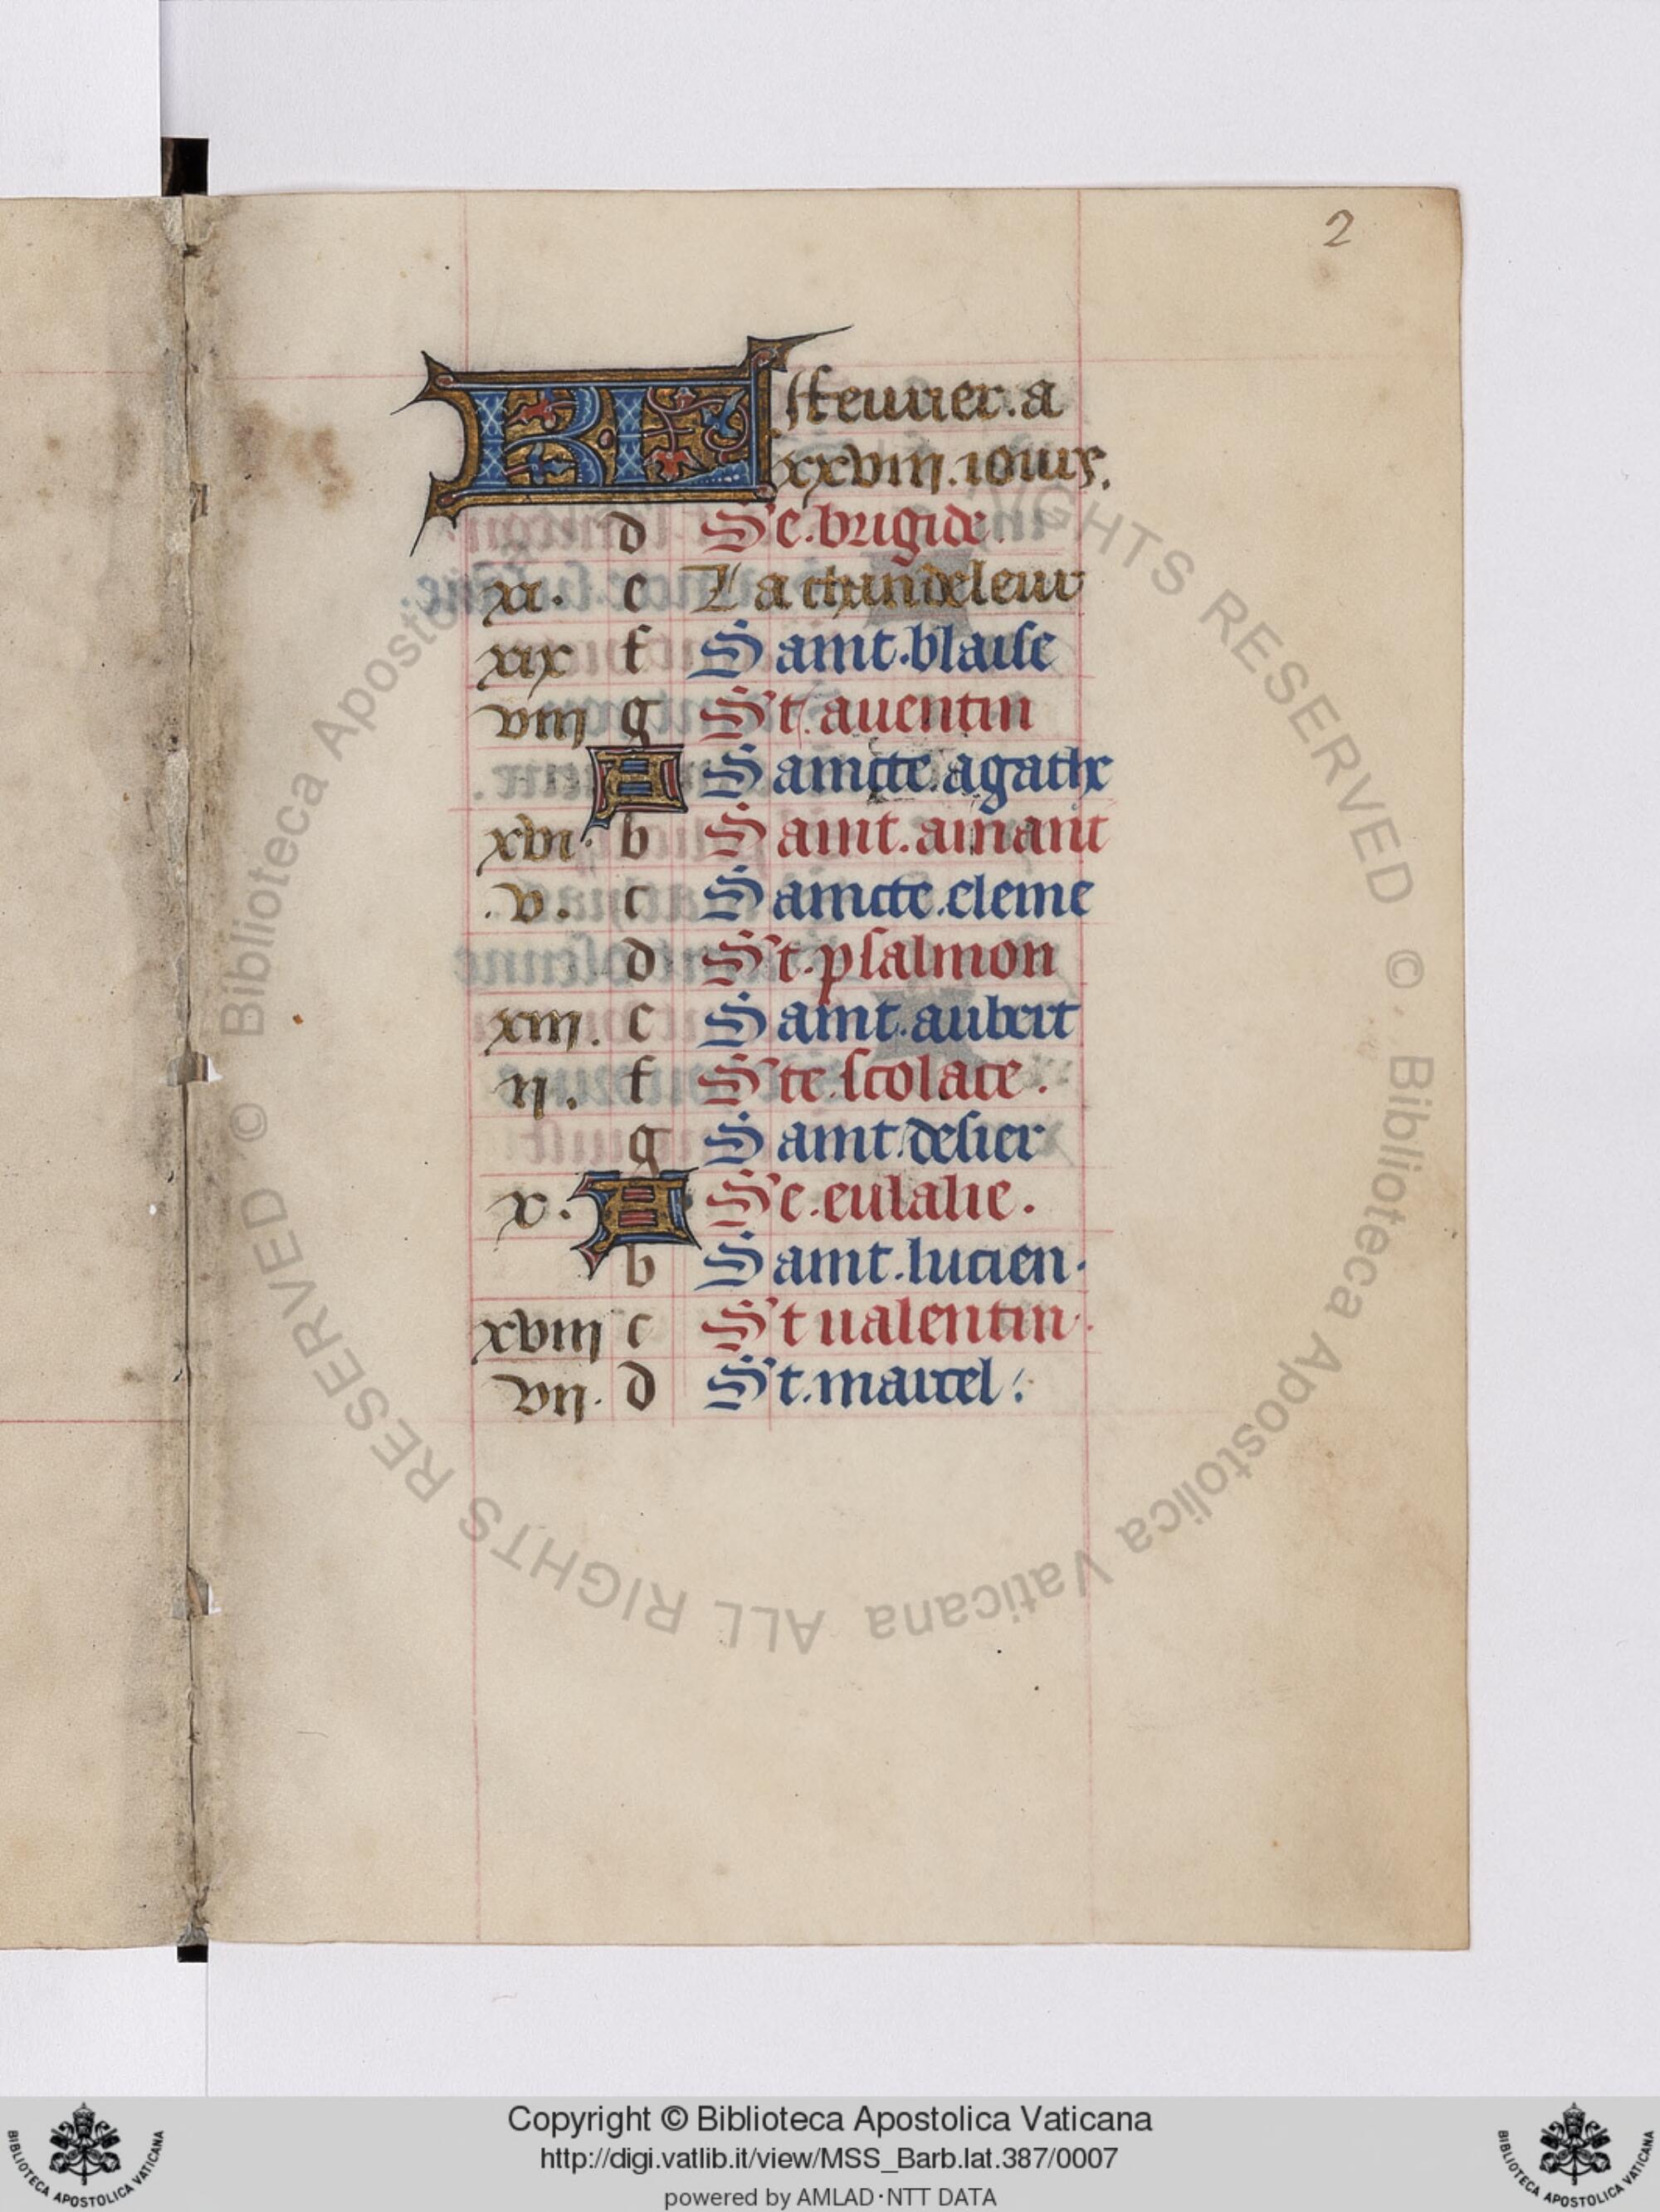 2
KL ffeurier. a
xxviii. iours.
d Se. brigide.
xi. e La chandeleur
xix f Saint. blaise
viii g St. auentin
A Saincte. agathe
xvi. b Saint. amant
.v. c Saincte. eleine
d St. psalmon
xiii. e Saint. aubert
ii. f Ste. scolace.
g Saint desier
x. A Se. eulalie.
b Saint. lucien.
xviii c St ualentin.
vii. d St. marcel.
© Biblioteca Apostolica Vaticana ALL RIGHTS RESERVED © Biblioteca Apostolica Vaticana ALL RIGHTS RESERVED
Copyright © Biblioteca Apostolica Vaticana
http://digi.vatlib.it/view/MSS_Barb.lat.387/0007
powered by AMLAD·NTT DATA
BIBLIOTECA APOSTOLICA VATICANA
BIBLIOTECA APOSTOLICA VATICANA